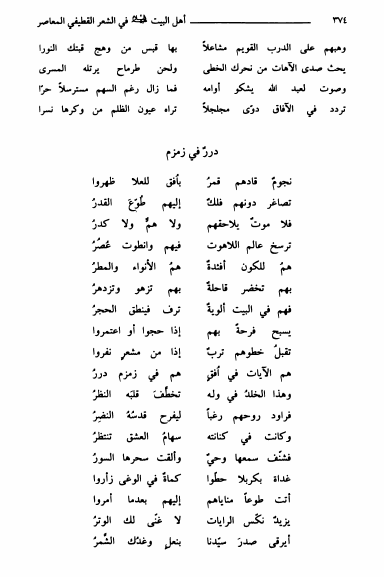 ٣٧٤ أهل البيت في الشعر القطيفي المعاصر
وهبهم على الدرب القويم مشاعلاً بها قبس من وهج قبتك النورا
يحث صدى الآهات من نحرك الخطى ولحن طرماح يرتله المسرى
وصوت لعبد الله يشكو أوامه فما زال رغم السهم مسترسلاً حرّا
تردد في الآفاق دوّى مجلجلاً تراه عيون الظلم من وكرها نسرا
دررٌ في زمزم
نجومٌ قادهم قمرٌ بأفق للعلا ظهروا
تصاغر دونهم فلكٌ إليهم طُوِّعَ القدرُ
فلا موتٌ يلاحقهم ولا همٌّ ولا كدرُ
ترسخ عالم اللاهوت فيهم وانطوت عُصُرُ
همُ للكون أفئدةٌ همُ الأنواء والمطرُ
بهم تخضر قاحلةٌ بهم تزهو وتزدهرُ
فهم في البيت ألويةٌ ترف فينطق الحجرُ
يسبح فرحةً بهم إذا حجوا أو اعتمروا
تقبلُ خطوهم تربٌ إذا من مشعرٍ نفروا
هم الآيات في أفقٍ هم في زمزم دررُ
وهذا الخلدُ في ولهٍ تخطّفَ قلبَه النظرُ
فراود روحهم رغباً ليفرح قدسُهُ النضِرُ
وكانت في كنانته سهامُ العشق تنتظرُ
فشنّف سمعها وحيٌ وألقت سحرها السورُ
غداة بكربلا حطّوا كماةٌ في الوغى زأروا
أتت طوعاً مناياهم إليهم بعدما أمروا
يزيدُ نكّس الرايات لا غنّى لك الوترُ
أيرقى صدرَ سيّدنا بنعلٍ وغدُك الشَّمِرُ